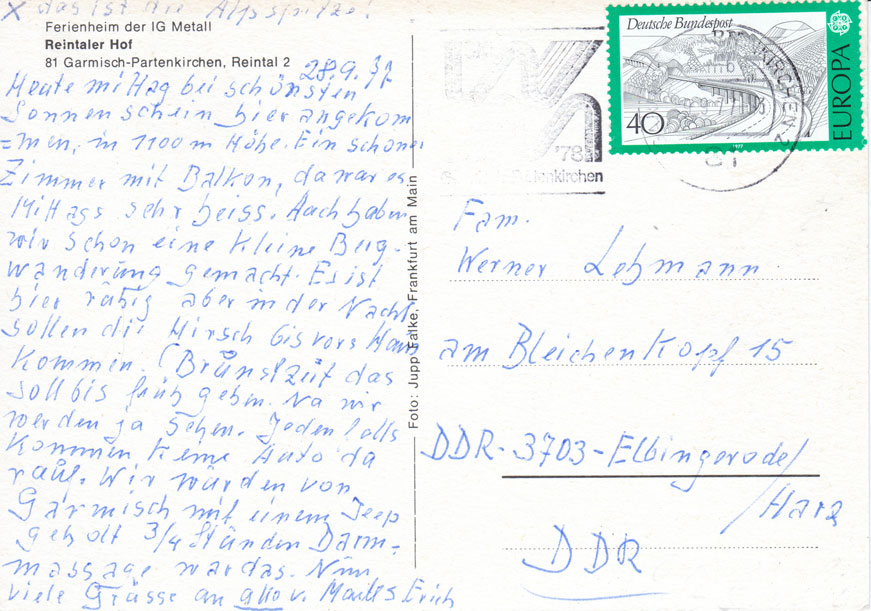 x das ist die Alpspitze!
Ferienheim der IG Metall
Reintaler Hof
81 Garmisch-Partenkirchen, Reintal 2
28.9.77
Heute mittag bei schönsten
Sonnenschein hier angekom
=men, in 1100 m Höhe. Ein schönes
Zimmer mit Balkon, da war es
Mittags sehr heiss. Auch haben
wir schon eine kleine Berg-
wanderung gemacht. Es ist
hier ruhig aber in der Nacht
sollen die Hirsch bis vors Haus
kommen. (Brunstzeit das
soll bis früh gehen. Na wir
werden ja sehen. Jedenfalls
kommen keine Auto da
rauf. Wir wurden von
Garmisch mit einem Jeep
geholt 3/4 Stunden Darm=
massage war das. Nun
viele Grüsse an alle v. Erich
Foto: Jupp Falke, Frankfurt am Main
Deutsche Bundespost
40
EUROPA
1977
'78
81
Fam.
Werner Lehmann
am Bleichenkopf 15
DDR-3703-Elbingerode/
Harz
DDR